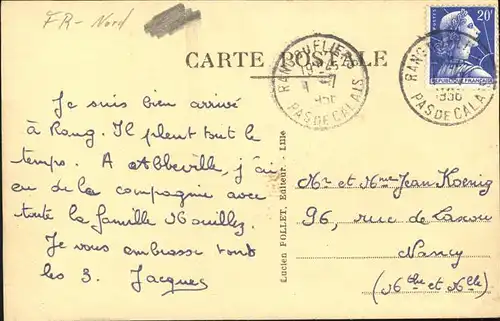 FR- Nord
CARTE POSTALE
RANG DU FLIERS
PAS DE CALAIS
RANG
1956
PAS DE CALAIS
20F
REPUBLIQUE FRANÇAISE
Je suis bien arrivé
à Rang. Il pleut tout le
temps. A Abbeville, j'ai
eu de la compagnie avec
toute la famille Nouillez.
Je vous embrasse tous
les 3. Jacques
Lucien POLLET, Editeur - Lille
Mr et Mme Jean Koenig
96, rue de Laxou
Nancy
(Mthe et Mlle)